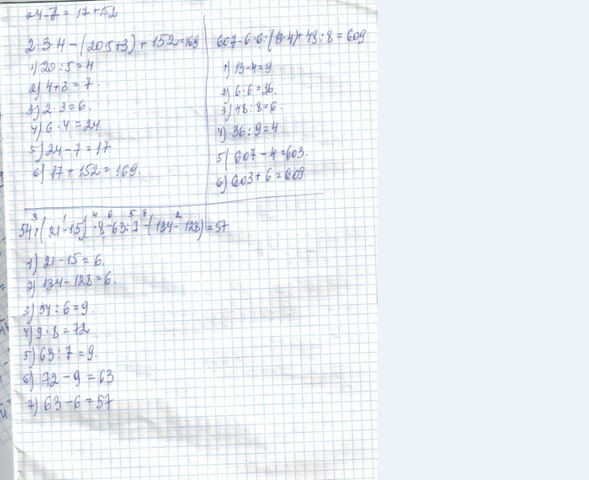 24-7 = 17+152
2·3·4-(20:5+3)+152=169
1) 20:5=4
2) 4+3=7.
3) 2·3=6.
4) 6·4=24
5) 24-7=17
6) 17+152=169.
607-6·6:(13-4)+48:8=609
1) 13-4=9
2) 6·6=36.
3) 48:8=6.
4) 36:9=4
5) 607-4=603.
6) 603+6=609
3 1 4 6 5 7 2
54:(21-15)·8-63:7-(134-128)=57
1) 21-15=6.
2) 134-128=6.
3) 54:6=9.
4) 9·8=72
5) 63:7=9.
6) 72-9=63
7) 63-6=57